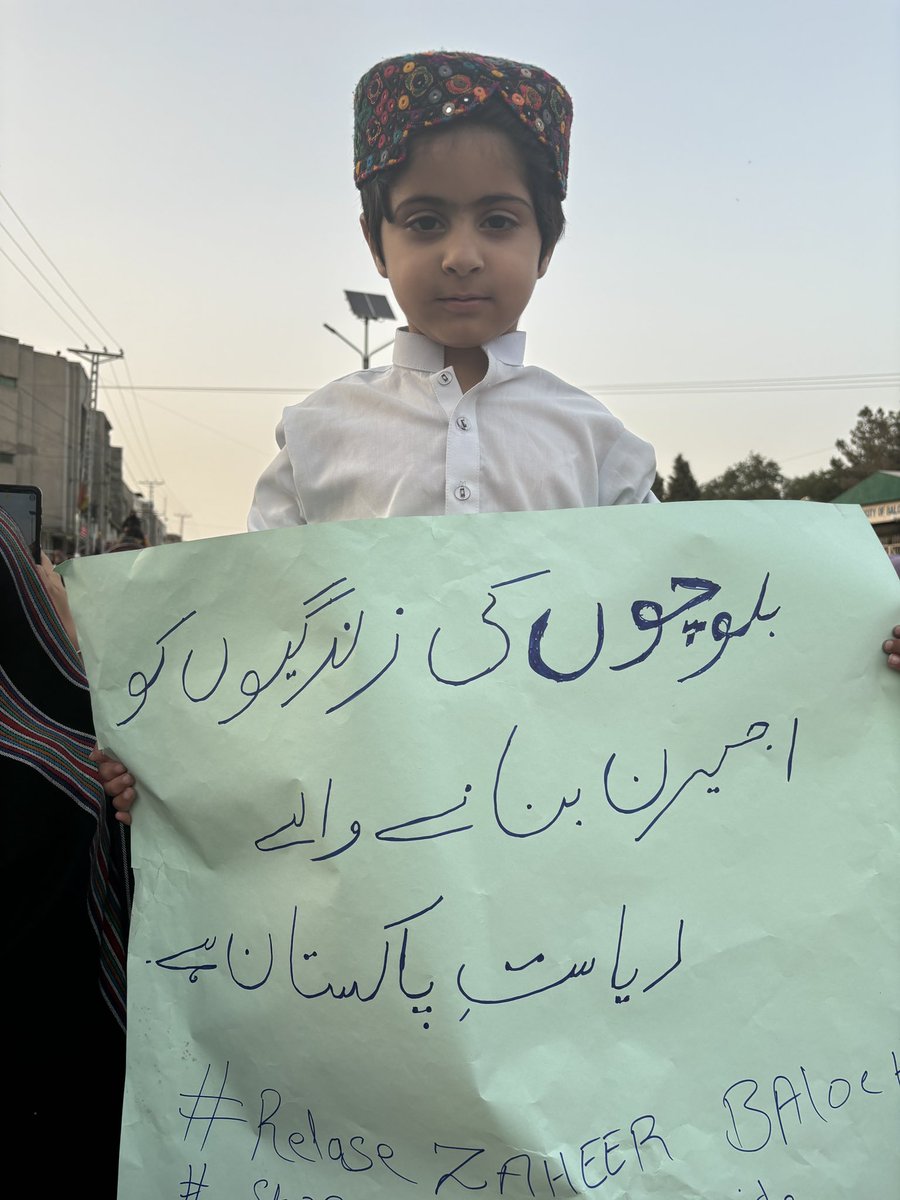 ITY OF BAL
بلوچوں کی زندگیوں کو
اجیرن بنانے والے
ریاستِ پاکستان ہے۔
#Relase ZAHEER BAloch
#